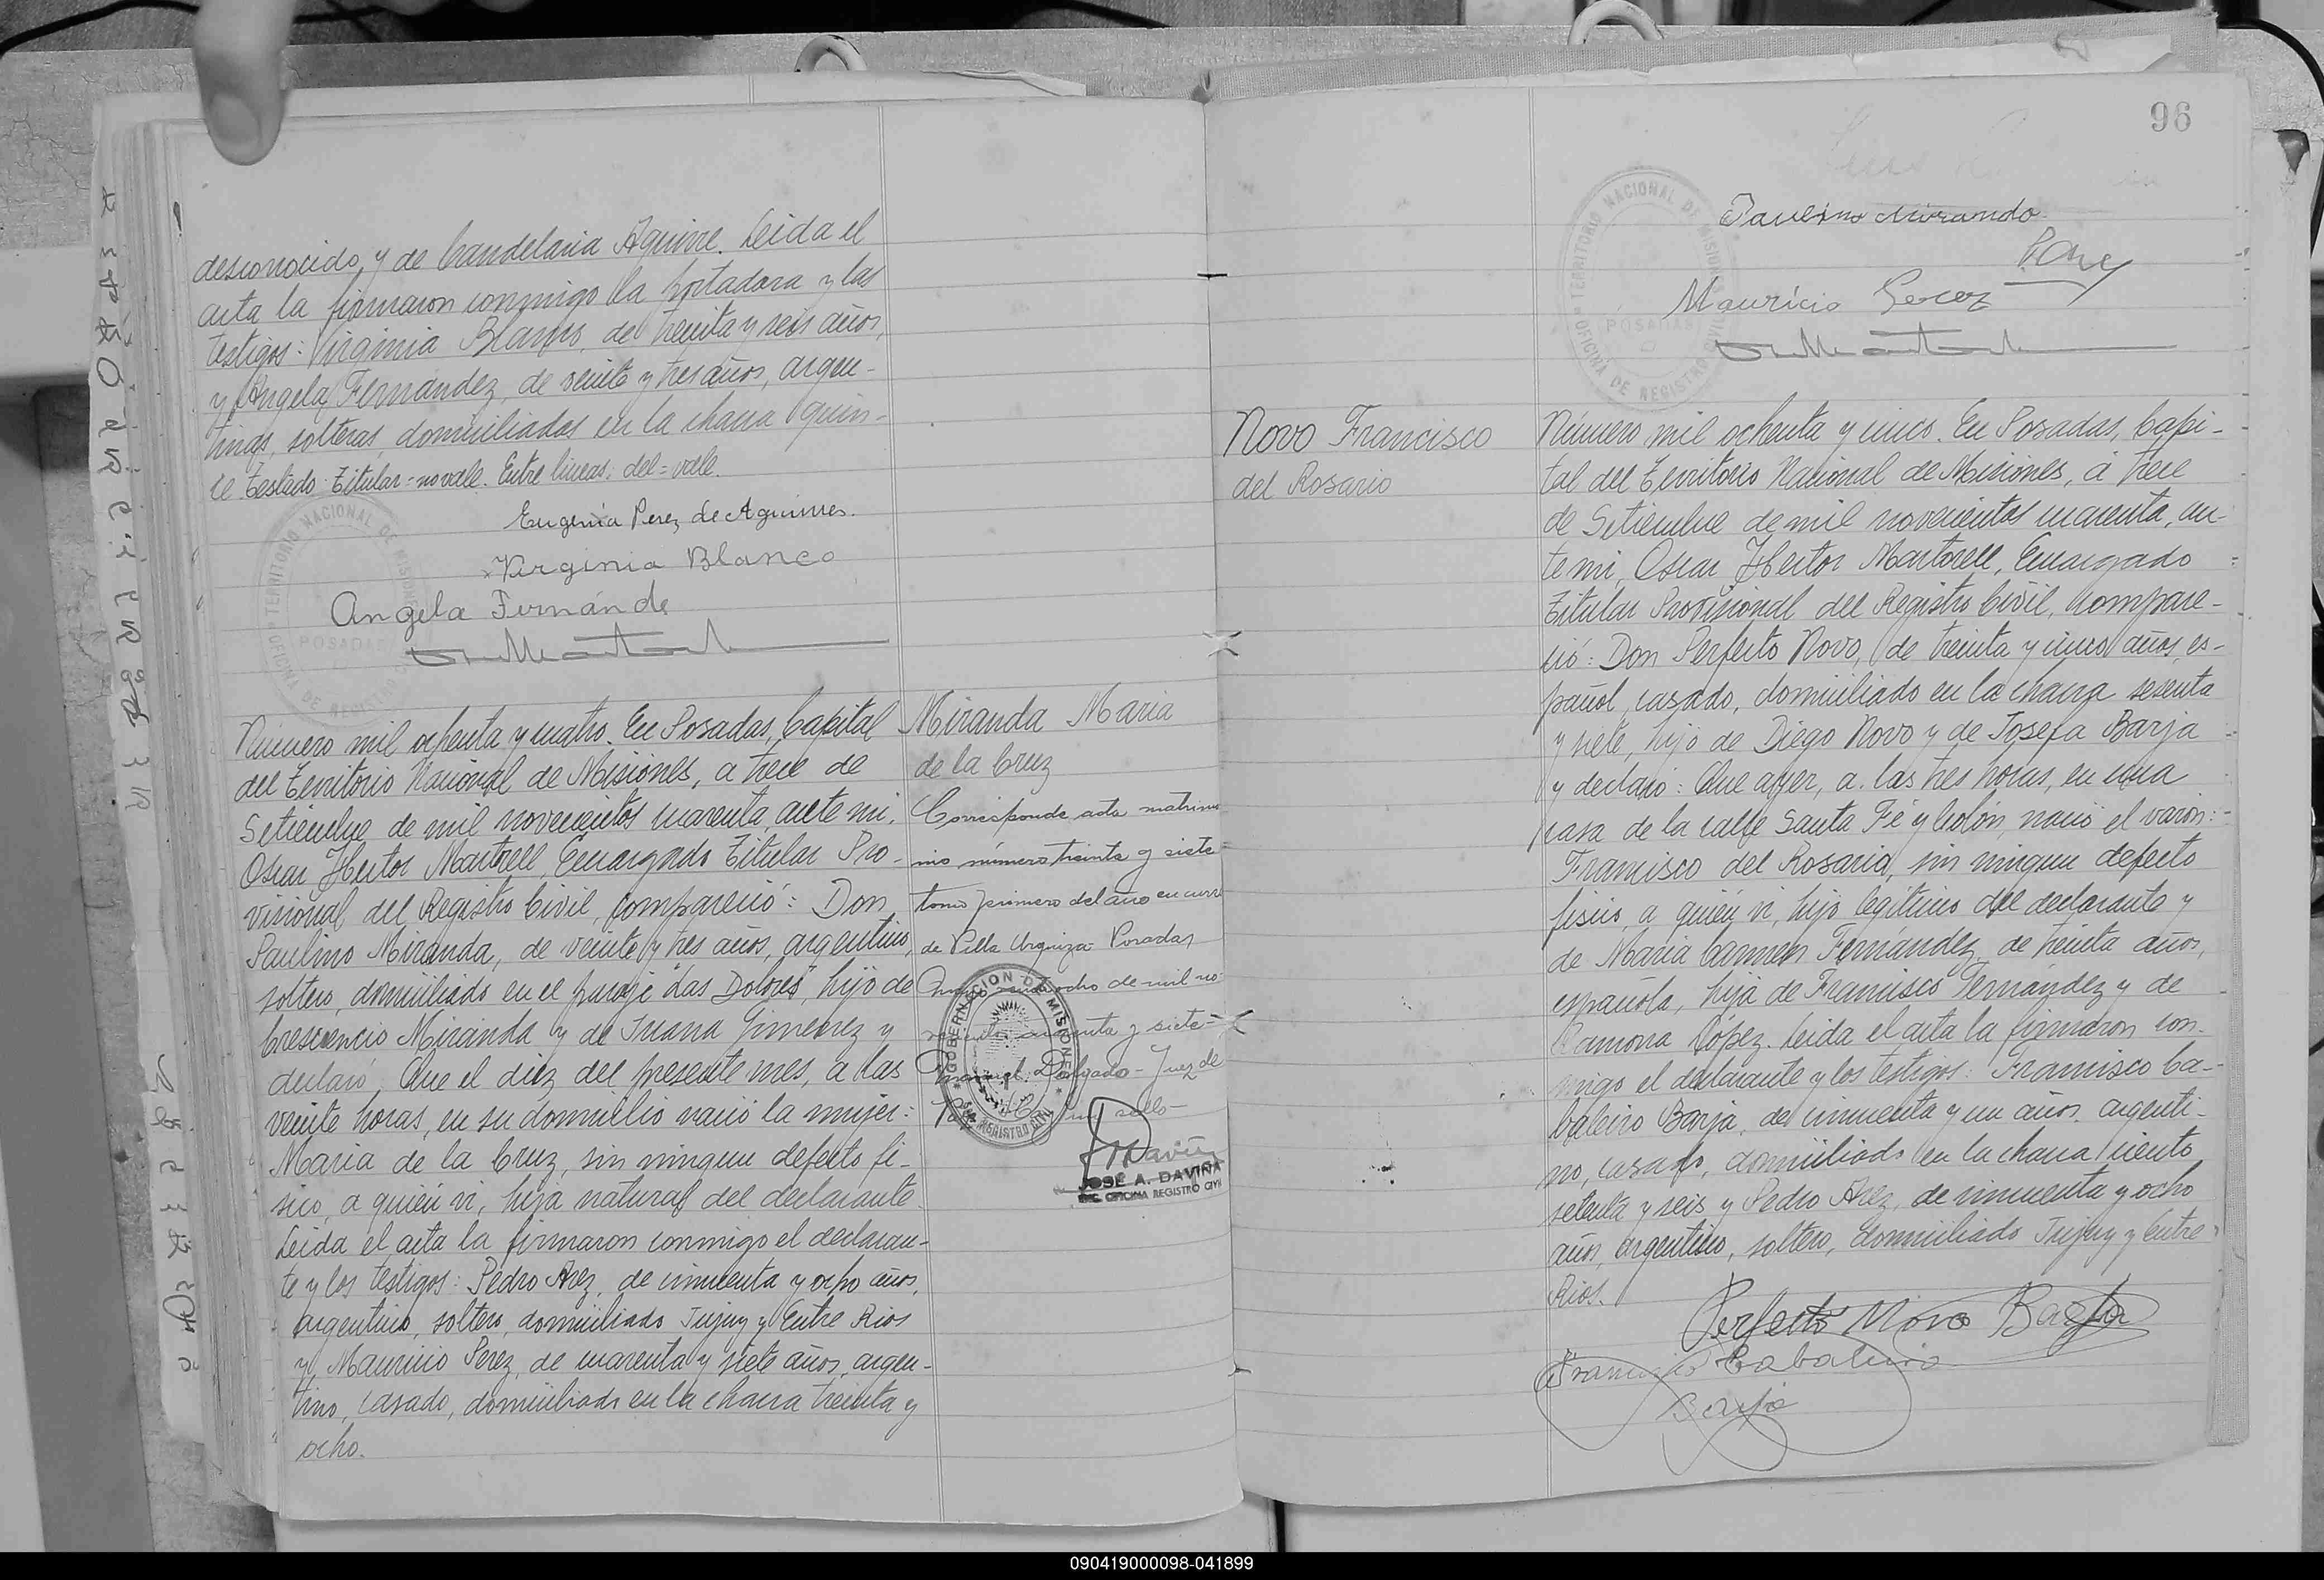 desconocido, y de Candelaria Aguirre. Leida el
acta la firmaron conmigo la portadora y las
testigos: Virginia Blanco, de treinta y seis años,
y Angela Fernández, de veinte y tres años, argen-
tinas, solteras, domiciliadas en la chacra quin-
ce Testado: Titular = no vale. Entre lineas: del = vale.
Eugenia Perez de Aguirres.
Virginia Blanco
Angela Fernánde
TERRITORIO NACIONAL DE MISIONES
POSADAS
OFICINA DE REGISTRO CIVIL
Número mil ochenta y cuatro. En Posadas, Capital
del Territorio Nacional de Misiones, a trece de
Setiembre de mil novecientos cuarenta, ante mi,
Oscar Hector Martorell, Encargado Titular Pro-
visional del Registro Civil, compareció: Don
Paulino Miranda, de veinte y tres años, argentino,
soltero, domiciliado en el paraje "Las Dolores", hijo de
Crescencio Miranda y de Juana Gimenez y
declaró, Que el diez del presente mes, a las
veinte horas, en su domicilio nació la mujer:
Maria de la Cruz, sin ningun defecto fi-
sico, a quién vi, hija natural del declarante.
Leida el acta la firmaron conmigo el declaran-
te y los testigos: Pedro Arez, de cincuenta y ocho años,
argentino, soltero, domiciliado Jujuy y Entre Rios
y Mauricio Perez, de cuarenta y siete años, argen-
tino, casado, domiciliado en la chacra treinta y
ocho.
Miranda Maria
de la Cruz
Corresponde acta matrimo
nio número treinta y siete
tomo primero del año en curso
de Villa Urquiza Posadas
ocho de mil no-
cuarenta y siete
Manuel Delgado - Juez de
sello
GOBERNACION DE MISIONES
REGISTRO CIVIL
JOSÉ A. DAVIÑA
ENC. OFICINA REGISTRO CIVIL
96
TERRITORIO NACIONAL DE MISIONES
POSADAS
OFICINA DE REGISTRO CIVIL
Paulino Mirando
P. Arez
Mauricio Perez
Novo Francisco
del Rosario
Número mil ochenta y cinco. En Posadas, Capi-
tal del Territorio Nacional de Misiones, á trece
de Setiembre de mil novecientos cuarenta, an-
te mi, Oscar Hector Martorell, Encargado
Titular Provisional del Registro Civil, compare-
ció: Don Perfecto Novo, de treinta y cinco años, es-
pañol, casado, domiciliado en la chacra sesenta
y siete, hijo de Diego Novo y de Josefa Barja
y declaró: Que ayer, a las tres horas, en una
casa de la calle Santa Fé y Colón, nació el varón:
Francisco del Rosario, sin ningun defecto
fisico, a quién vi, hijo legitimo del declarante y
de Maria Carmen Fernández, de treinta años,
española, hija de Francisco Fernández y de
Ramona López. Leida el acta la firmaron con-
migo el declarante y los testigos: Francisco Ca-
baleiro Barja, de cincuenta y un años, argenti-
no, casado, domiciliado en la chacra ciento
setenta y seis y Pedro Arez, de cincuenta y ocho
años, argentino, soltero, domiciliado Jujuy y Entre
Rios.
Perfecto Novo Barja
Francisco Cabaleiro
Barja
090419000098-041899